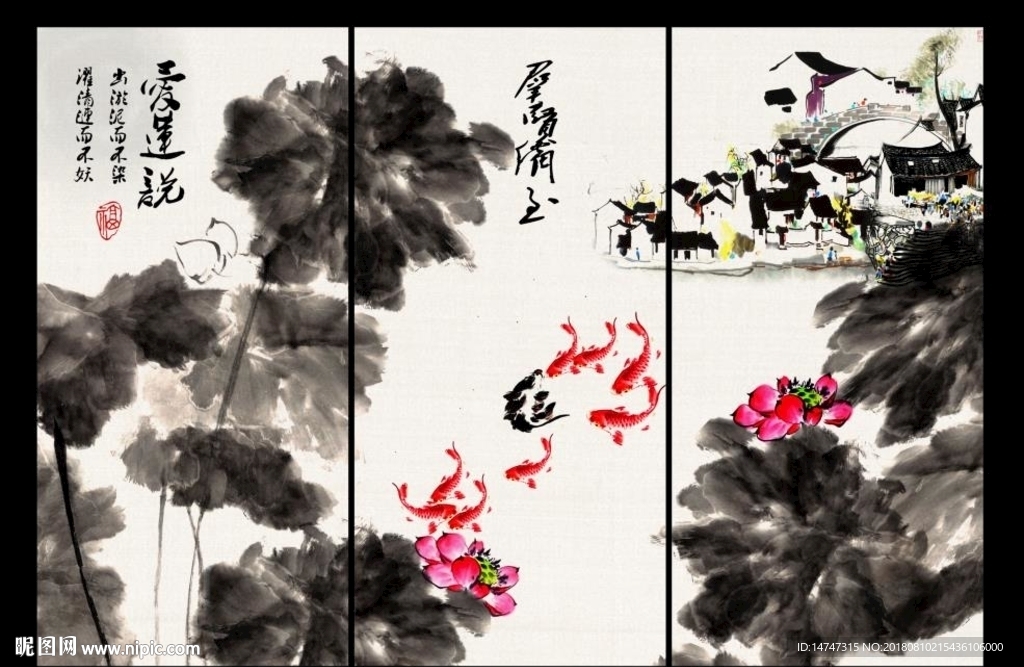 愛蓮説
出淤泥而不染
濯清漣而不妖
福
羣賢備至
昵图网 www.nipic.com
ID:14747315 NO:20180810215436106000